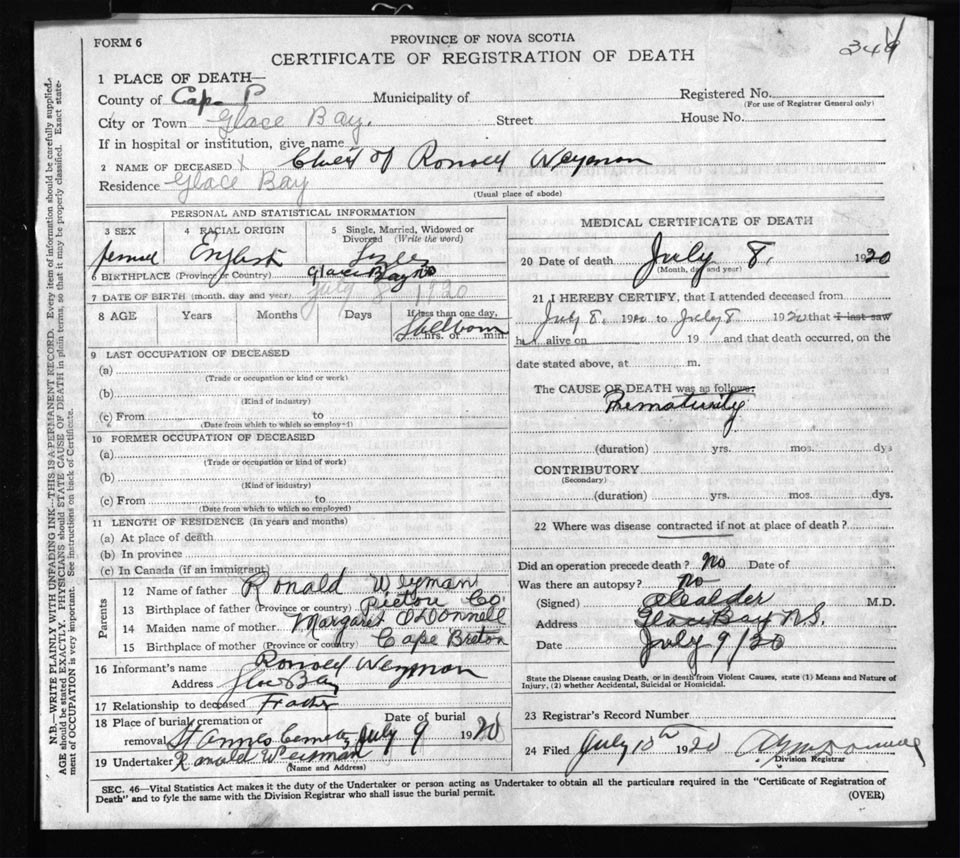 FORM 6
PROVINCE OF NOVA SCOTIA
CERTIFICATE OF REGISTRATION OF DEATH
N.B.—WRITE PLAINLY WITH UNFADING INK—THIS IS A PERMANENT RECORD. Every item of information should be carefully supplied.
AGE should be stated EXACTLY. PHYSICIANS should STATE CAUSE OF DEATH in plain terms, so that it may be properly classified. Exact statement of OCCUPATION is very important. See instructions on back of Certificate.
1 PLACE OF DEATH—
County of Cape Municipality of Registered No.
(For use of Registrar General only)
City or Town Glace Bay. Street House No.
If in hospital or institution, give name
2 NAME OF DECEASED X Child of Ronald Weyman
Residence Glace Bay
(Usual place of abode)
PERSONAL AND STATISTICAL INFORMATION
3 SEX 4 RACIAL ORIGIN 5 Single, Married, Widowed or Divorced (Write the word)
English
6 BIRTHPLACE (Province or Country) Glace Bay NS
7 DATE OF BIRTH (month, day and year) July 8 1920
8 AGE Years Months Days If less than one day, hrs. or min.
Stillborn
9 LAST OCCUPATION OF DECEASED
(a)
(Trade or occupation or kind or work)
(b)
(Kind of industry)
(c) From to
(Date from which to which so employed)
10 FORMER OCCUPATION OF DECEASED
(a)
(Trade or occupation or kind of work)
(b)
(Kind of industry)
(c) From to
(Date from which to which so employed)
11 LENGTH OF RESIDENCE (In years and months)
(a) At place of death
(b) In province
(c) In Canada (if an immigrant)
Parents
12 Name of father Ronald Weyman
13 Birthplace of father (Province or country) Pictou Co
14 Maiden name of mother Margaret O'Donnell
15 Birthplace of mother (Province or country) Cape Breton
16 Informant's name Ronald Weyman
Address Glace Bay
17 Relationship to deceased Father
18 Place of burial, cremation or removal St Annes Cemetery Date of burial July 9 1920
19 Undertaker Ronald Weisman
(Name and Address)
MEDICAL CERTIFICATE OF DEATH
20 Date of death July 8. 1920
(Month, day and year)
21 I HEREBY CERTIFY, that I attended deceased from
July 8. 1920 to July 8 1920 that I last saw
h alive on 19 and that death occurred, on the
date stated above, at m.
The CAUSE OF DEATH was as follows:
Prematurity
(duration) yrs. mos. dys
CONTRIBUTORY
(Secondary)
(duration) yrs. mos. dys.
22 Where was disease contracted if not at place of death?
Did an operation precede death? No Date of
Was there an autopsy? no
(Signed) M.D.
Address Glace Bay N.S.
Date July 9/20
State the Disease causing Death, or in death from Violent Causes, state (1) Means and Nature of
Injury, (2) whether Accidental, Suicidal or Homicidal.
23 Registrar's Record Number
24 Filed July 10th 1920
Division Registrar
SEC. 46—Vital Statistics Act makes it the duty of the Undertaker or person acting as Undertaker to obtain all the particulars required in the "Certificate of Registration of
Death" and to fyle the same with the Division Registrar who shall issue the burial permit.
(OVER)